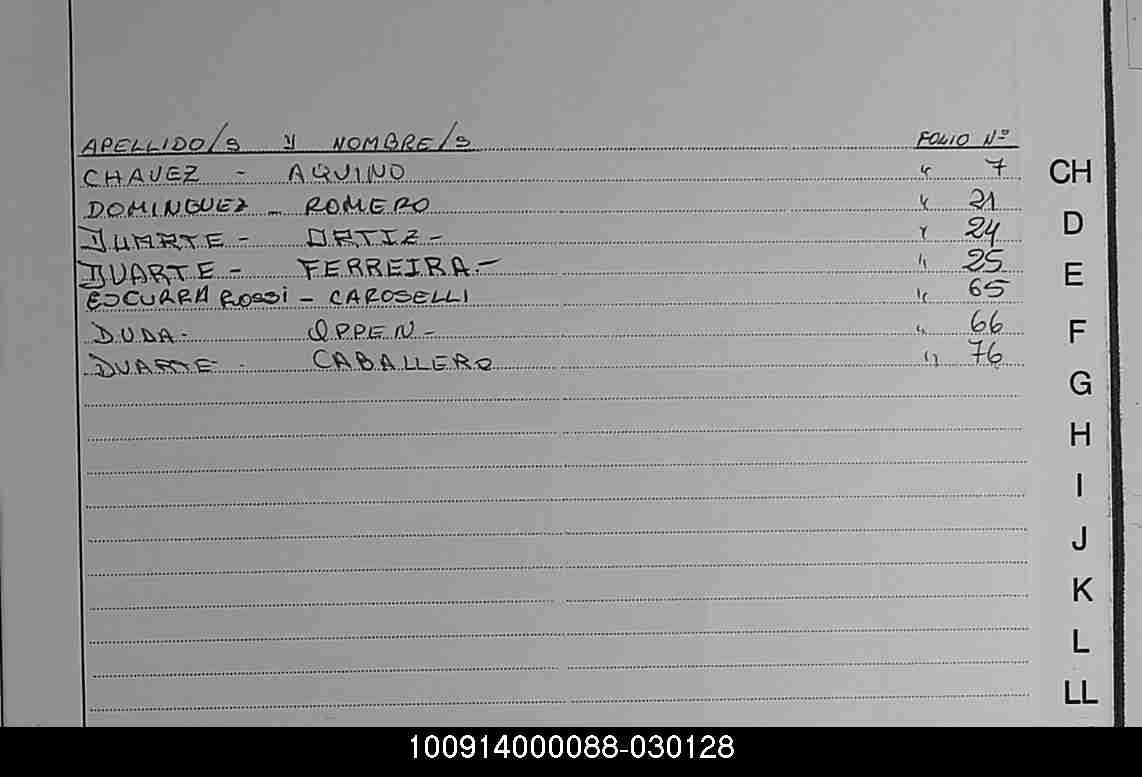 APELLIDO/S Y NOMBRE/S FOLIO Nº
CHAVEZ - AQUINO " 7
DOMINGUEZ - ROMERO " 21
DUARTE - ORTIZ - " 24
DUARTE - FERREIRA.- " 25
ESCURRA ROSSI - CAROSELLI " 65
DUDA - OPPEN - " 66
DUARTE - CABALLERO " 76
CH
D
E
F
G
H
I
J
K
L
LL
100914000088-030128